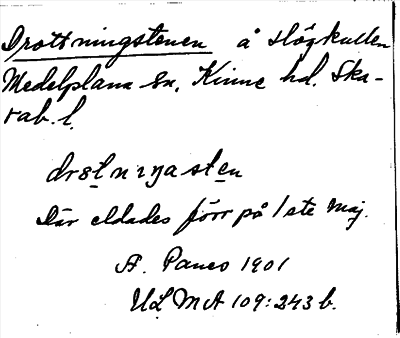 Drottningstenen å Högkullen
Medelplana sn, Kinne hd. Ska-
rab. l.
Där eldades förr på 1ste Maj.
A. Paues 1901
ULMA 109:243 b.